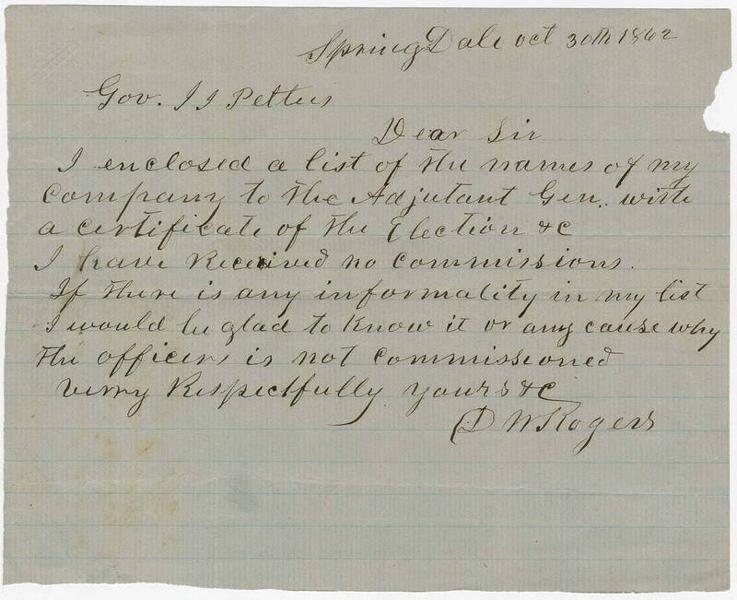 Spring Dale oct 30th 1862
Gov. J J Pettus
Dear Sir
I enclosed a list of the names of my
company to the Adjutant Gen. with
a certificate of the Election &c
I have Received no commissions.
If there is any informality in my list
I would be glad to know it or any cause why
the officers is not commissioned
verry Respectfully yours &c
D W Rogers